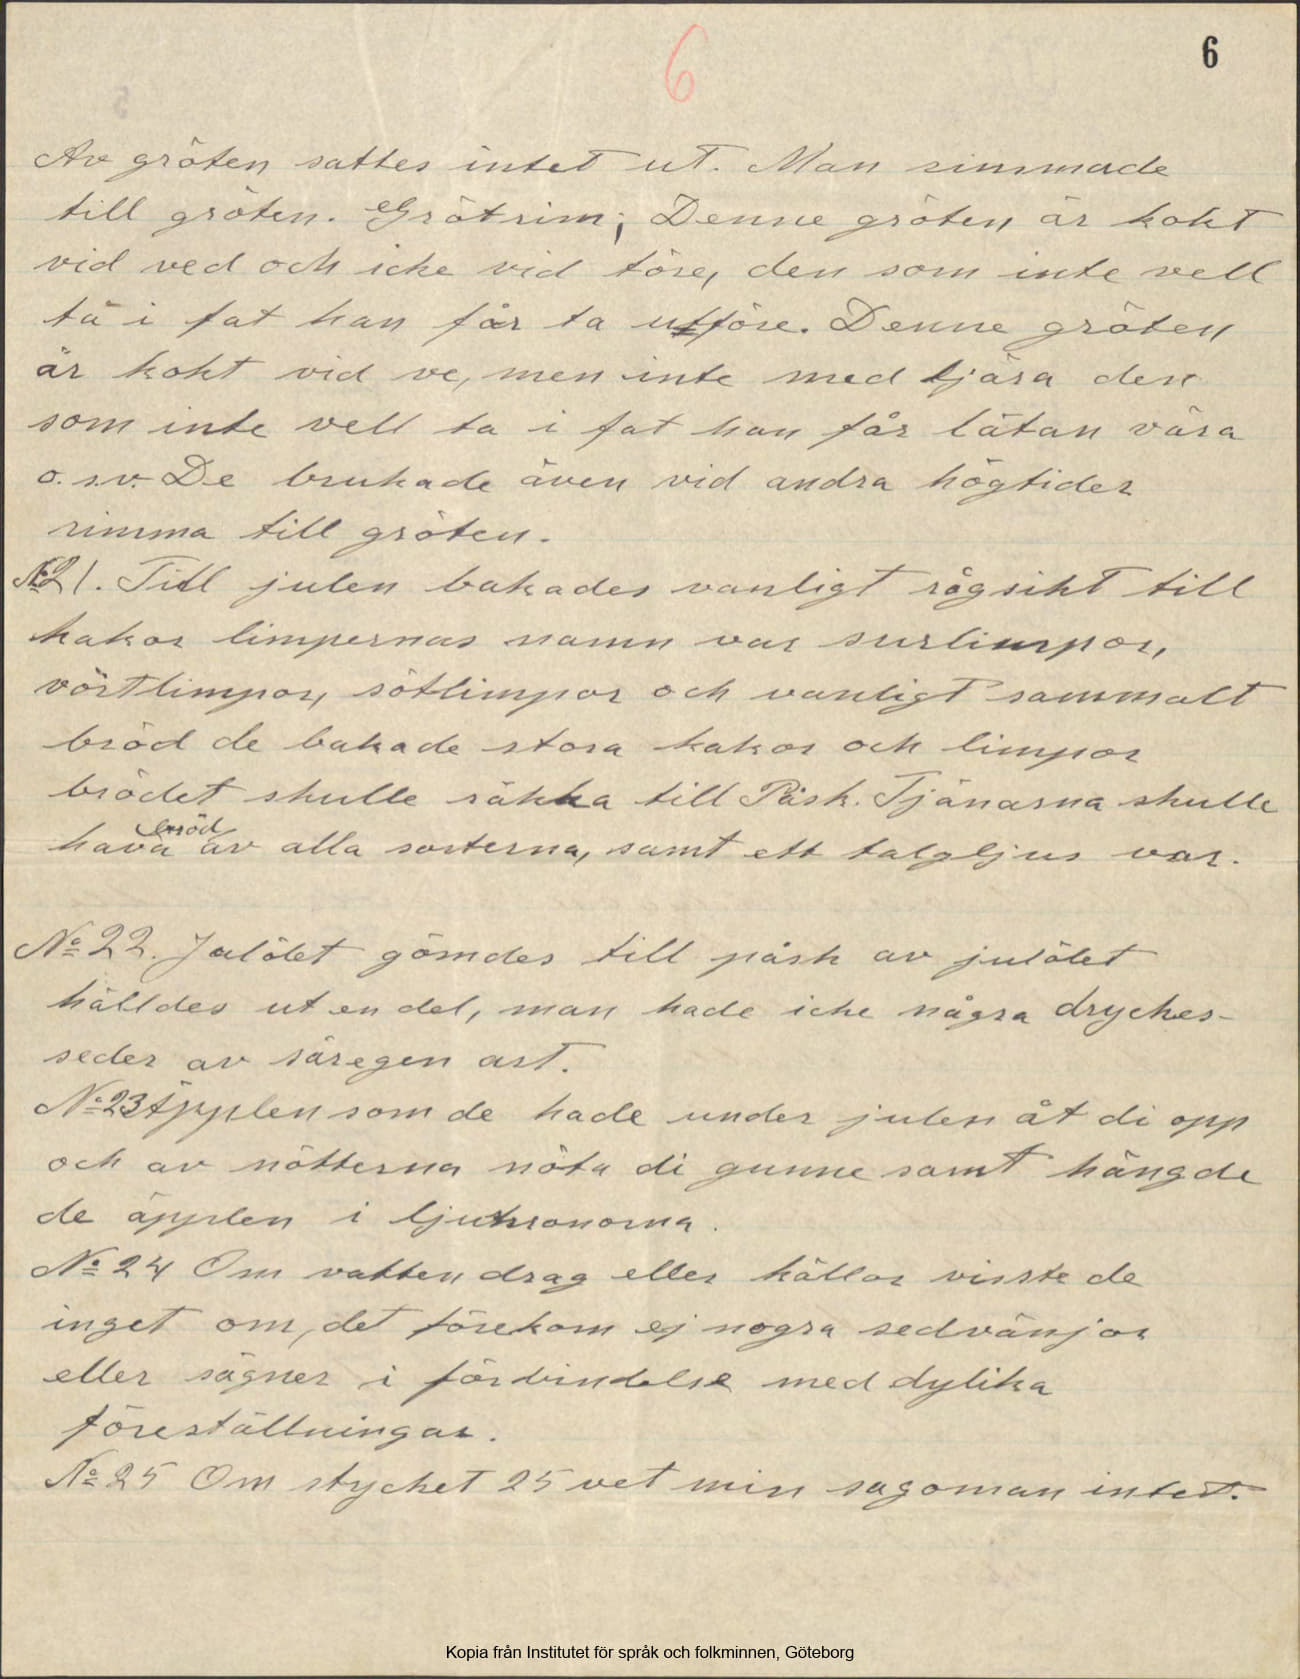 6
6
Av gröten sattes intet ut. Man rimmade
till gröten. Grötrim; Denne gröten är kokt
vid ved och icke vid töre, den som inte vell
ta i fat han får ta utföre. Denne gröten
är kokt vid ve, men inte med tjära den
som inte vell ta i fat han får låtan våra
o.s.v. De brukade även vid andra högtider
rimma till gröten.
№21. Till julen bakades vanligt rågsikt till
kakor limpernas namn var surlimpor,
vörtlimpor, sötlimpor och vanligt sammalt
bröd de bakade stora kakor och limpor
brödet skulle räkka till Påsk. Tjänarna skulle
bröd
hava av alla sorterna, samt ett talgljus var.
№22. Julölet gömdes till påsk av julölet
hälldes ut en del, man hade icke några dryckes-
seder av säregen art.
№23 Äpplen som de hade under julen åt di opp
och av nötterna nöta di gunne samt hängde
de äpplen i ljuskronorna.
№24 Om vattendrag eller källor visste de
inget om, det förekom ej nogra sedvänjor
eller sägner i förbindelse med dylika
föreställningar.
№25 Om stycket 25 vet min sagoman intet.
Kopia från Institutet för språk och folkminnen, Göteborg